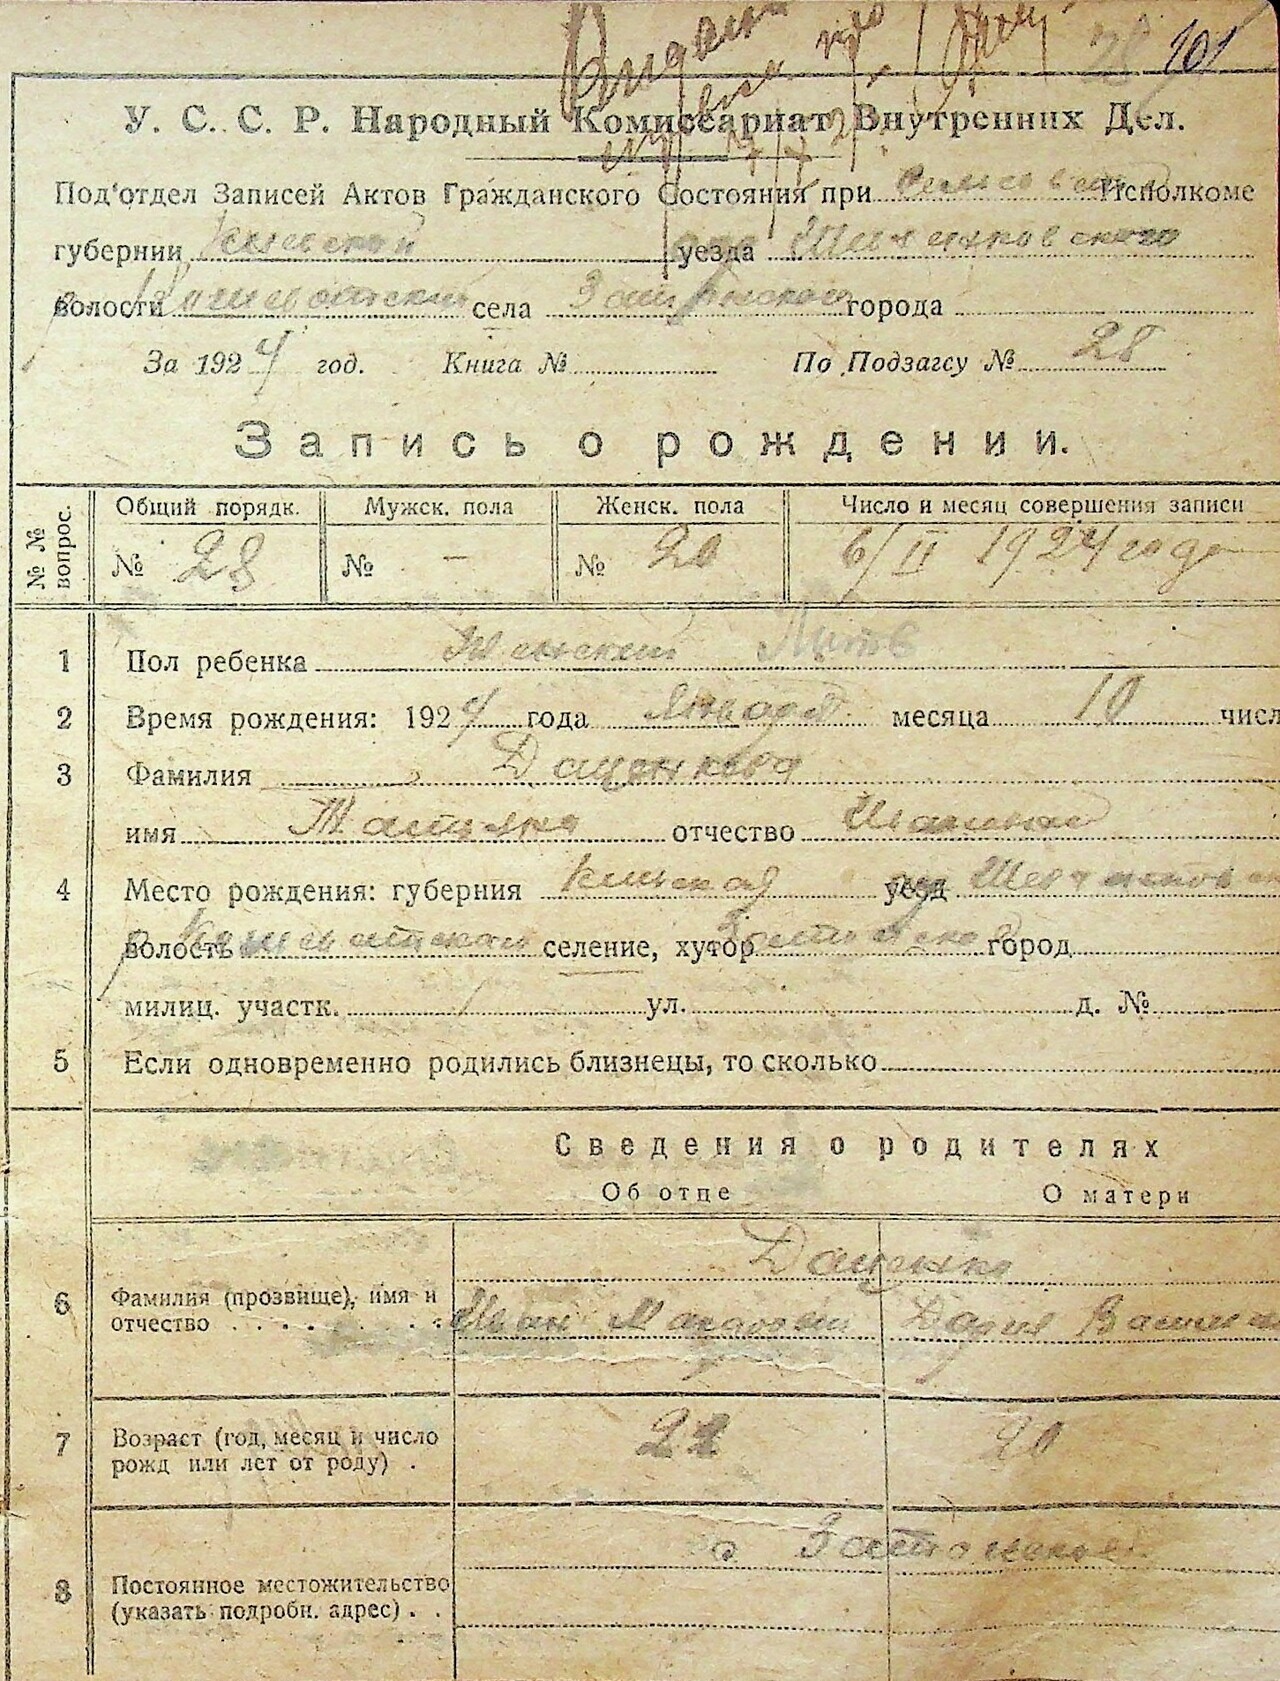 28 101
У. С. С. Р. Народный Комиссариат Внутренних Дел.
Под'отдел Записей Актов Гражданского Состояния при Исполкоме
губернии Киевской уезда Шевченковского
волости села города
За 1924 год. Книга № По Подзагсу № 28
Запись о рождении.
№ № вопрос. Общий порядк. Мужск. пола Женск. пола Число и месяц совершения записи
№ 28 № – № 20 6/II 1924 года
1 Пол ребенка Женский
2 Время рождения: 1924 года Января месяца 10 числ
3 Фамилия Даценкова
имя Татьяна отчество Ивановна
4 Место рождения: губерния Киевская уезд Шевченковск
волость селение, хутор город
милиц. участк. ул. д. №
5 Если одновременно родились близнецы, то сколько
Сведения о родителях
Об отце О матери
Даценко
6 Фамилия (прозвище), имя и
отчество . . . . . . . . Иван Макарович Дария Василев
7 Возраст (год, месяц и число
рожд или лет от роду) . 22 20
8 Постоянное местожительство
(указать подробн. адрес) . .